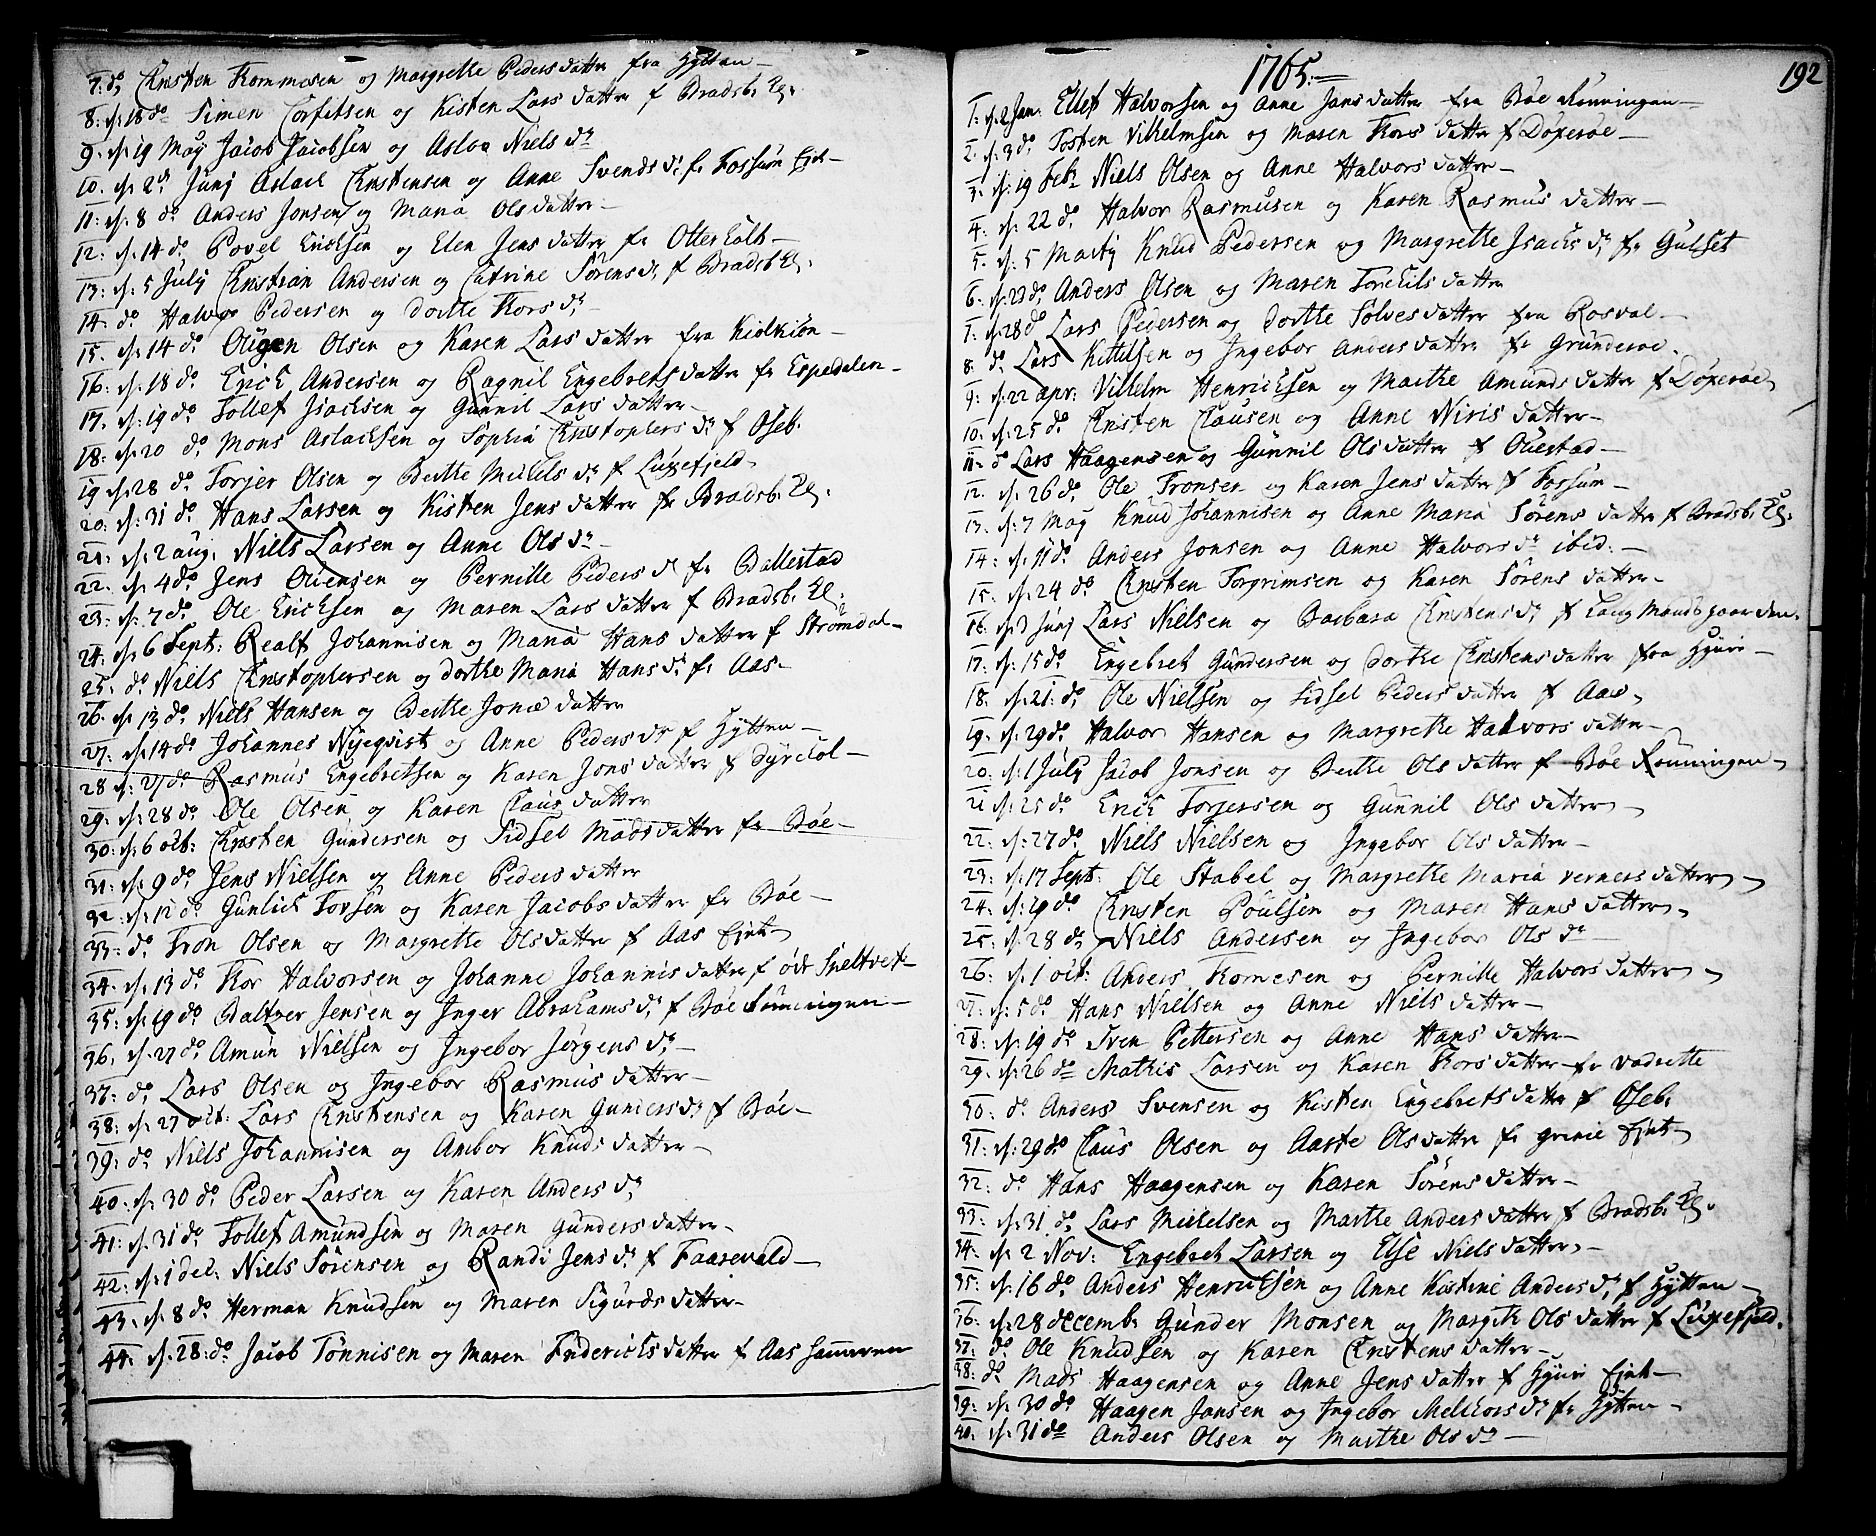 7: do Christen Thommesen og Margrethe Pedersdatter fra Hyttan
8: d: 18 do Simen Corfitsen og Kisten Larsdatter f Bradsb. Cl:
9: d: 19 Maj Jacob Jacobsen og Aslov Niels dr
10. d: 2 Junj Aslack Christensen og Anne Svends dr fr Fossum Ejet
11: d: 8 do Anders Jonsen og Maria Olsdatter
12: d: 14 do Povel Ericksen og Elen Jensdatter fr Otterholt
13: d: 5 July Christian Andersen og Catrine Sørens dr f Bradsb. Cl.
14: do Halvor Pedersen og Dorthe Thors dr
15. d: 14 do Ougen Olsen og Karen Larsdatter fra Kiølkiøn
16: d: 18 do Erick Andersen og Ragnil Engebretsdatter fr Espedalen
17: d: 19 do Tollef Isachsen og Gunnil Larsdatter
18: d: 20 do Mons Aslachsen og Sophia Christophers dr f Oseb.
19 d: 28 do Torjer Olsen og Berthe Michels dr f Luxefjeld
20: d: 31 do Hans Larsen og Kisten Jensdatter fr Bradsb. Cl.
21: d: 2 aug. Niels Larsen og Anne Ols dr
22: d: 4 do Jens Ouensen og Pernille Peders dr fr Ballestad
23: d: 7 do Ole Ericksen og Maren Larsdatter f Bradsb. Cl.
24: d: 6 Sept: Realf Johannisen og Maria Hansdatter f Strømdal
25: do Niels Christophersen og Dorthe Maria Hans dr fr Aas
26: d: 13 do Niels Hansen og Berthe Jonædatter
27: d: 14 do Johannes Nyeqvist og Anne Peders dr f Hyttan
28 d: 27 do Rasmus Engebretsen og Karen Jonsdatter f Dyrcol
29: d: 28 do Ole Olsen og Karen Clausdatter
30: d: 6 oct: Christen Gundersen og Sidsel Madsdatter fr Bøe
31: d: 9 do Jens Nielsen og Anne Pedersdatter
32: d: 12 do Gunlich Torsen og Karen Jacobsdatter fr Bøe
33: do Tron Olsen og Margrethe Olsdatter f Aas Ejet
34: d: 13 do Thor Halvorsen og Johanne Johannisdatter f øde Sneltvet
35: d: 19 do Baltzer Jensen og Inger Abrahams dr f Bøe Rønningen
36. d: 27 do Amun Nielsen og Ingebor Jørgens dr
37: do Lars Olsen og Ingebor Rasmusdatter
38: d: 27 oct: Lars Christensen og Karen Gunders dr f Bøe
39: do Niels Johannisen og Ambor Knudsdatter
40: d: 30 do Peder Larsen og Karen Anders dr
41: d: 31 do Tollef Amundsen og Maren Gundersdatter
42: d: 1 dec: Niels Sørensen og Randi Jens dr f Faarevald
43: d: 8 do Herman Knudsen og Maren Sigurdsdatter
44: d: 28: do Jacob Tønnisen og Maren Friderichsdatter f Aas
192
1765.
1: d: 2 Jan. Ellef Halvorsen og Anne Jansdatter fra Bøe Rønningen
2: d: 3 do Tosten Vilhelmsen og Maren Thorsdatter f Døxerøe
3: d: 19 Febr Niels Olsen og Anne Halvorsdatter
4: d: 22 do Halvor Rasmusen og Karen Rasmusdatter
5: d: 5 Martj Knud Pedersen og Margrethe Isachs dr fr Gulset
6: d: 23 do Anders Olsen og Maren Torchilsdatter
7: d: 28 do Lars Pedersen og Dorthe Solvesdatter fra Rosval
8: do Lars Kittilsen og Ingebor Andersdatter fr Grunderøe
9: d: 22 apr: Vilhelm Henrichsen og Marthe Amundsdatter f Døxerøe
10. d: 25 do Christen Clausen og Anne Nirisdatter
11: do Lars Haagensen og Gunnil Olsdatter f Ouestad
12. d: 26 do Ole Tronsen og Karen Jensdatter f Fossum
13: d: 7 Maj Knud Johannisen og Anne Maria Sørensdatter f Bradsb. Cl.
14: d: 11 do Anders Jonsen og Anne Halvors dr ibid.
15: d: 24 do Christen Torgrimsen og Karen Sørensdatter
16: d: 3 Junj Lars Nielsen og Barbara Christens dr f Laugmandsgaarden
17: d: 15 do Engebret Gundersen og Dorthe Christensdatter fra Hyuri
18: d: 21: do Ole Nielsen og Sidsel Pedersdatter f Aas
19: d: 29 do Halvor Hansen og Margrethe Halvorsdatter
20: d: 1 July Jacob Jonsen og Berthe Olsdatter f Bøe Rønningen
21 d: 25 do Erick Torgersen og Gunnil Olsdatter
22: d: 27 do Niels Nielsen og Ingebor Olsdatter
23: d: 17 Sept: Ole Stabel og Margrethe Maria Vernersdatter
24: d: 19 do Christen Poulsen og Maren Hansdatter
25: d: 28 do Niels Andersen og Ingebor Ols dr
26: d: 1 oct: Anders Thomesen og Pernille Halvorsdatter
27: d: 5 do Hans Nielsen og Anne Nielsdatter
28: d: 19 do Sven Pettersen og Anne Hansdatter
29: d: 26 do Mathis Larsen og Karen Thorsdatter fr Vadrette
30: do Anders Svensen og Kisten Engebretsdatter f Oseb.
31: d: 29 do Claus Olsen og Aaste Olsdatter fr Grinie Ejet
32: do Hans Haagensen og Karen Sørensdatter
33: d: 31 do Lars Michelsen og Marthe Andersdatter f Bradsb. Cl.
34: d: 2 Nov: Engebret Larsen og Else Nielsdatter
35: d: 16 do Anders Henrichsen og Anne Kistine Anders dr f Hyttan
36: d: 28 decemb. Gunder Monsen og Margith Olsdatter f Luxefjeld.
37: do Ole Knudsen og Karen Christensdatter
38: do Mads Haagensen og Anne Jensdatter f Hyuri Ejet
39: d: 30 do Haagen Jansen og Ingebor Melchors dr fr Hyttan
40. d: 31 do Anders Olsen og Marthe Ols dr